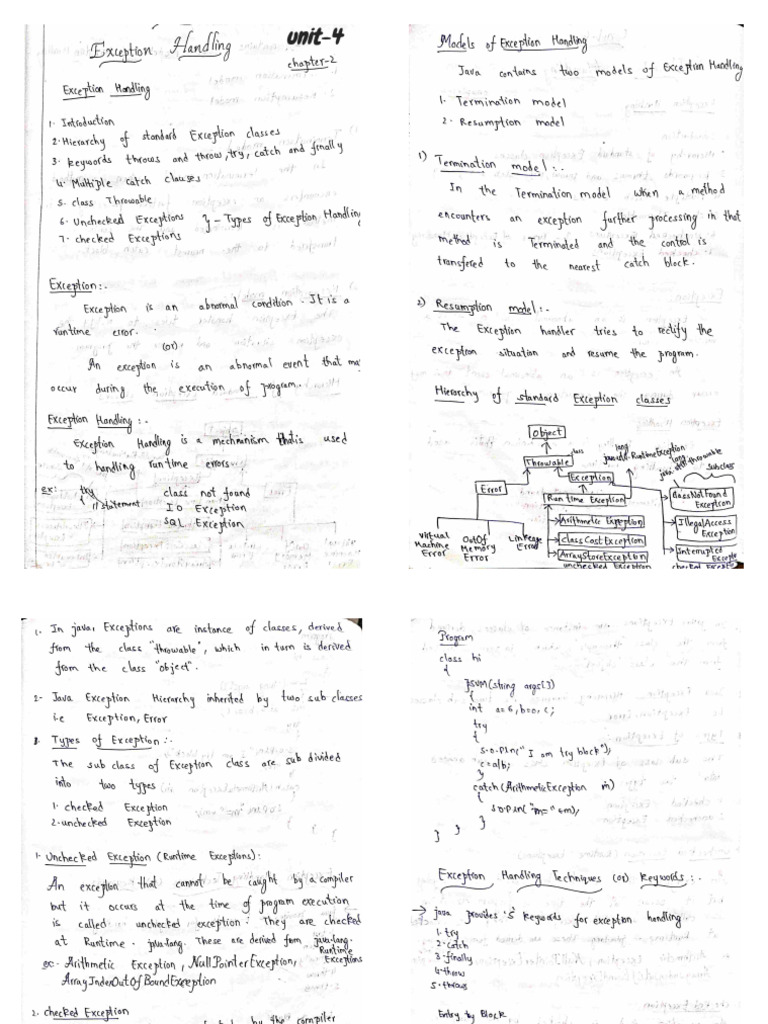 Exception Handling
unit-4
chapter-2
Exception Handling
1. Introduction
2. Hierarchy of standard Exception classes
3. keywords throws and throw, try, catch and finally
4. Multiple catch clauses
5. class Throwable
6. Unchecked Exceptions } - Types of Exception Handling
7. checked Exceptions
Exception:-
Exception is an abnormal condition. It is a
runtime error.
(or)
An exception is an abnormal event that ma
occur during the execution of program.
Exception Handling:-
Exception Handling is a mechnanism that is used
to handling runtime errors.
ex: try class not found
{ //statement IO Exception
SQL Exception
Models of Exception Handling
Java contains two models of Exception Handling
1. Termination model
2. Resumption model
1) Termination model:-
In the Termination model when a method
encounters an exception further processing in that
method is Terminated and the control is
transfered to the nearest catch block.
2) Resumption model:-
The Exception handler tries to rectify the
exception situation and resume the program.
Hierarchy of standard Exception classes
Object
Throwable
Exception
Error
Run time Exception
lang
RuntimeException
subclass
Virtual Machine Error
OutOf Memory Error
Linkage Error
Arithmetic Exception
classCostException
ArrayStoreException
unchecked Exception
classNotFound Exception
IllegalAccess Exception
Interrupted Excepti
checked
1. In java, Exceptions are instance of classes, derived
from the class "throwable", which in turn is derived
from the class "object".
2- Java Exception Hierarchy inherited by two sub classes
i.e Exception, Error
3. Types of Exception:-
The sub class of Exception class are sub divided
into two types
1. checked Exception
2-unchecked Exception
1. Unchecked Exception (Runtime Exceptions):
An exception that cannot be caught by a compiler
but it occurs at the time of program execution
is called unchecked exception. They are checked
at Runtime. java-lang. These are derived from java-lang.
Runtime
Exceptions
ex:- Arithmetic Exception, NullPointerException,
ArrayIndexOutOfBoundException
2. checked Exception
by the compiler
Program
class hi
{
PSVM(string args[])
{
int a=6, b=0, c;
try
{
s.o.pln("I am try block");
c=a/b;
}
catch(ArithmeticException m)
{
s.o.pln("m="+m);
}
} }
Exception Handling Techniques (or) Keywords:-
→ java provides '5' keywords for exception handling
1. try
2. catch
3. finally
4. throw
5. throws
Entry try Block